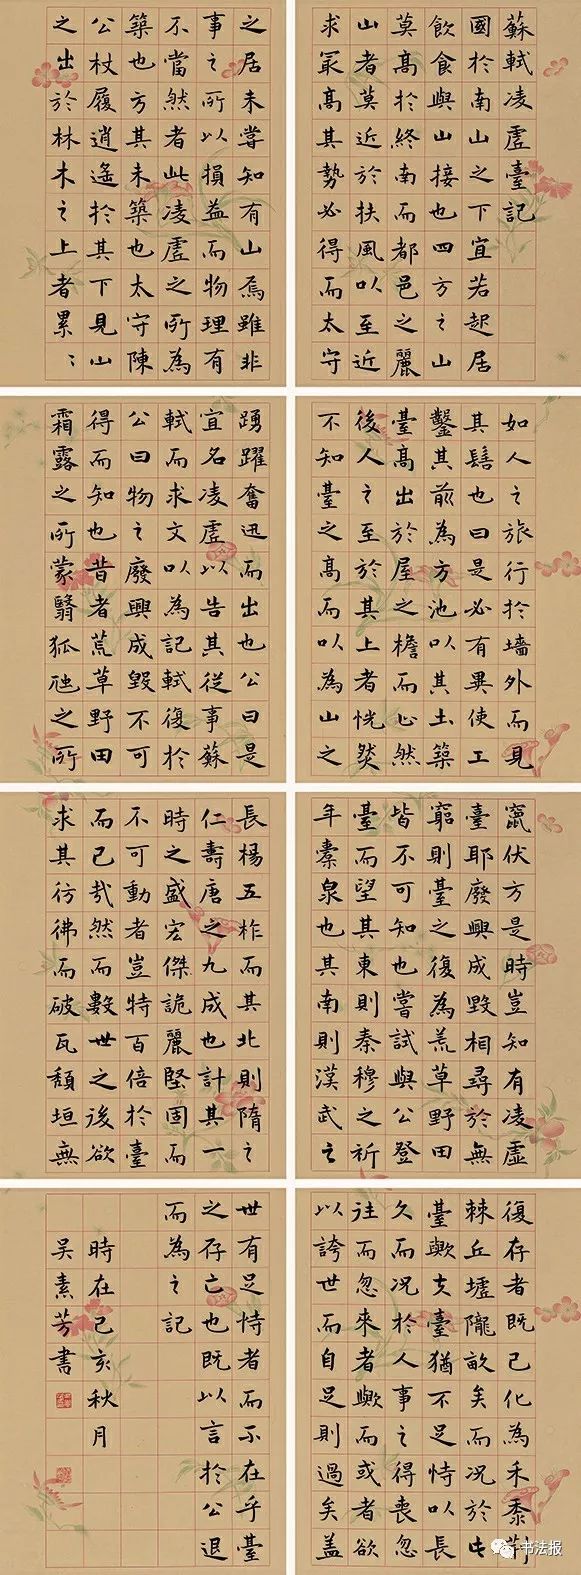 蘇軾凌虛臺記
國於南山之下宜若起居
飲食與山接也四方之山
莫高於終南而都邑之麗
山者莫近於扶風以至近
求冣高其勢必得而太守
之居未嘗知有山焉雖非
事之所以損益而物理有
不當然者此凌虛之所為
築也方其未築也太守陳
公杖履逍遙於其下見山
之出於林木之上者累〻
如人之旅行於墻外而見
其髻也曰是必有異使工
鑿其前為方池以其土築
臺高出於屋之檐而止然
後人之至於其上者恍然
不知臺之高而以為山之
踴躍奮迅而出也公曰是
宜名凌虛以告其從事蘇
軾而求文以為記軾復於
公曰物之廢興成毀不可
得而知也昔者荒草野田
霜露之所蒙翳狐虺之所
竄伏方是時豈知有凌虛
臺耶廢興成毀相尋於無
窮則臺之復為荒草野田
皆不可知也嘗試與公登
臺而望其東則秦穆之祈
年橐泉也其南則漢武之
長楊五柞而其北則隋之
仁壽唐之九成也計其一
時之盛宏傑詭麗堅固而
不可動者豈特百倍於臺
而已哉然而數世之後欲
求其彷彿而破瓦頹垣無
復存者既已化為禾黍荊
棘丘墟隴畝矣而況於此
臺歟夫臺猶不足恃以長
久而況於人事之得喪忽
往而忽來者歟而或者欲
以誇世而自足則過矣蓋
世有足恃者而不在乎臺
之存亡也既以言於公退
而為之記
時在己亥秋月
吳素芳書
书法报